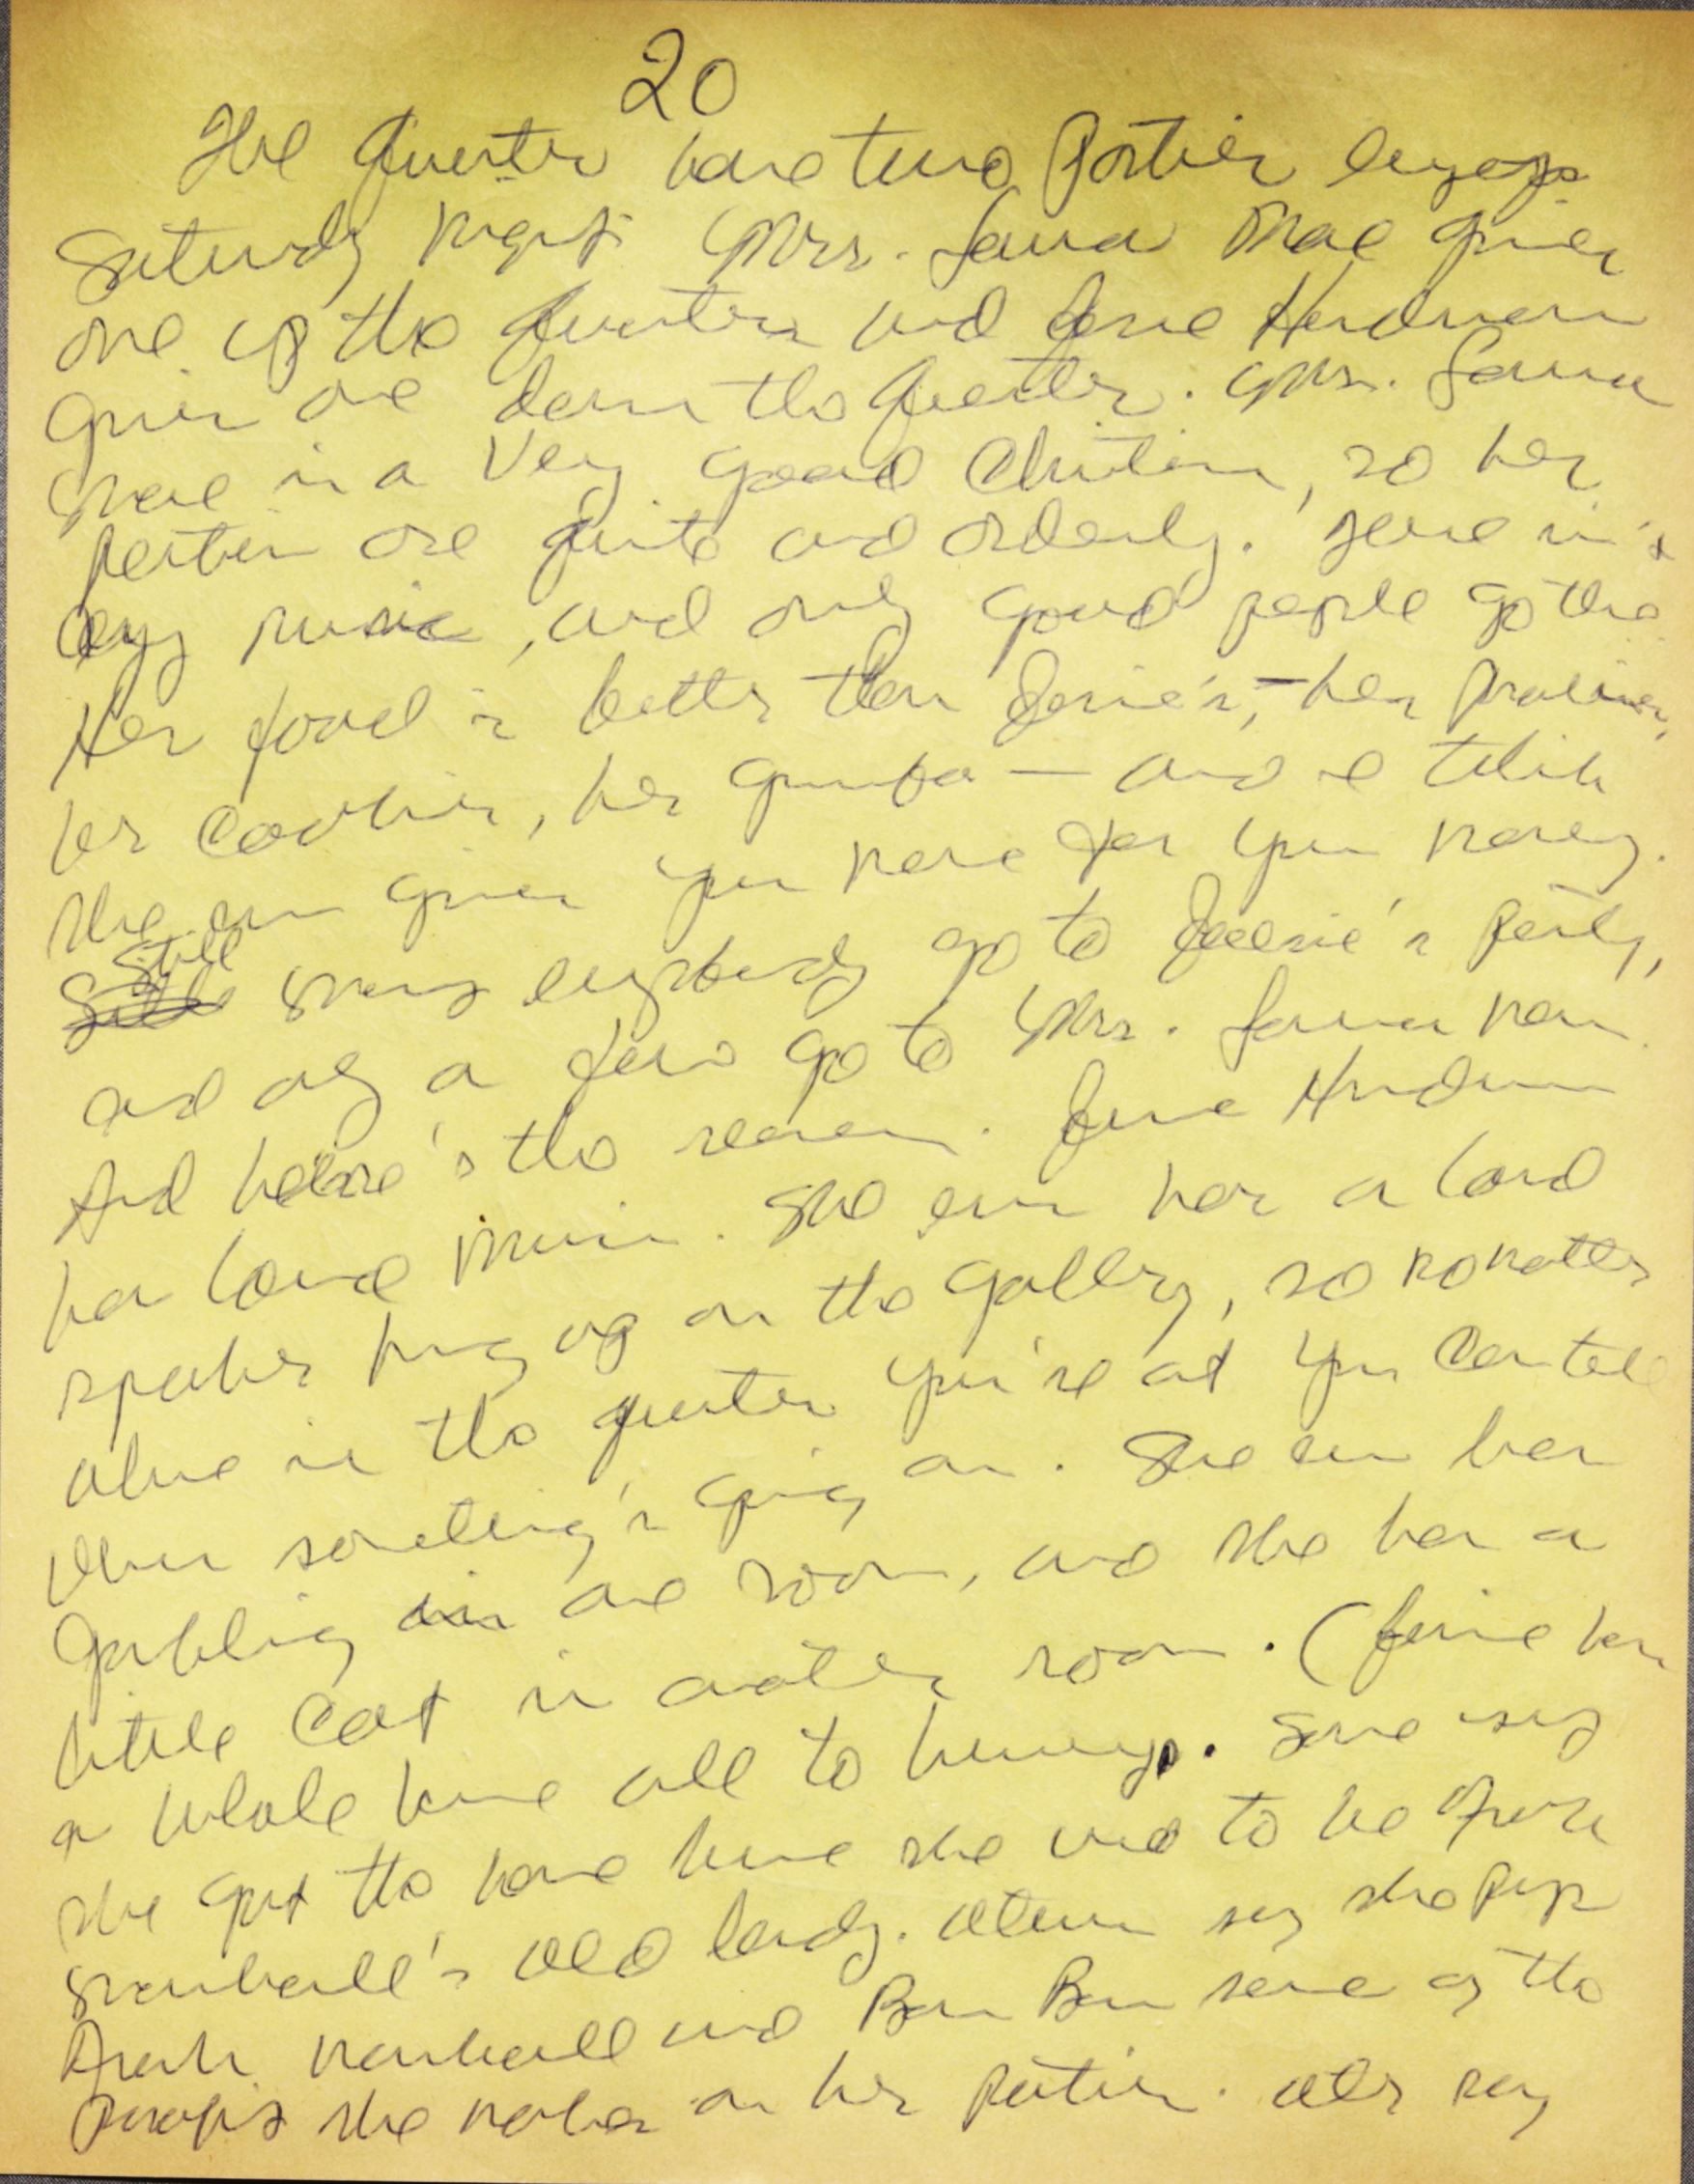 20
The Quarter have two parties every
Saturday night. Mrs. Laura Mae gives
one up the quarters and Josie Henderson
gives one down the quarter. Mrs. Laura
Mae is a very good Christian, so her
parties are quite and orderly. There ain't
any music, and only good people go there
Her food is better than Josie's, — her pralines,
her cookies, her gumbo — and I think
she even gives you more for your money.
Still many everybody go to Josie's party,
and only a few go to Mrs. Laura Mae
And here's the reason. Josie Henderson
has loud music. She even has a loud
speaker hung up on the gallery, so no matter
where in the quarter you're at you can tell
when something's going on. She even has
gambling in one room, and she has a
little cat in another room. (Josie has
a whole house all to herself. Some say
she got the house because she used to be Frank
Marshall's old lady. Others say she pays
Frank Marshall and Bon Bon some of the
profits she makes on her parties. Others say